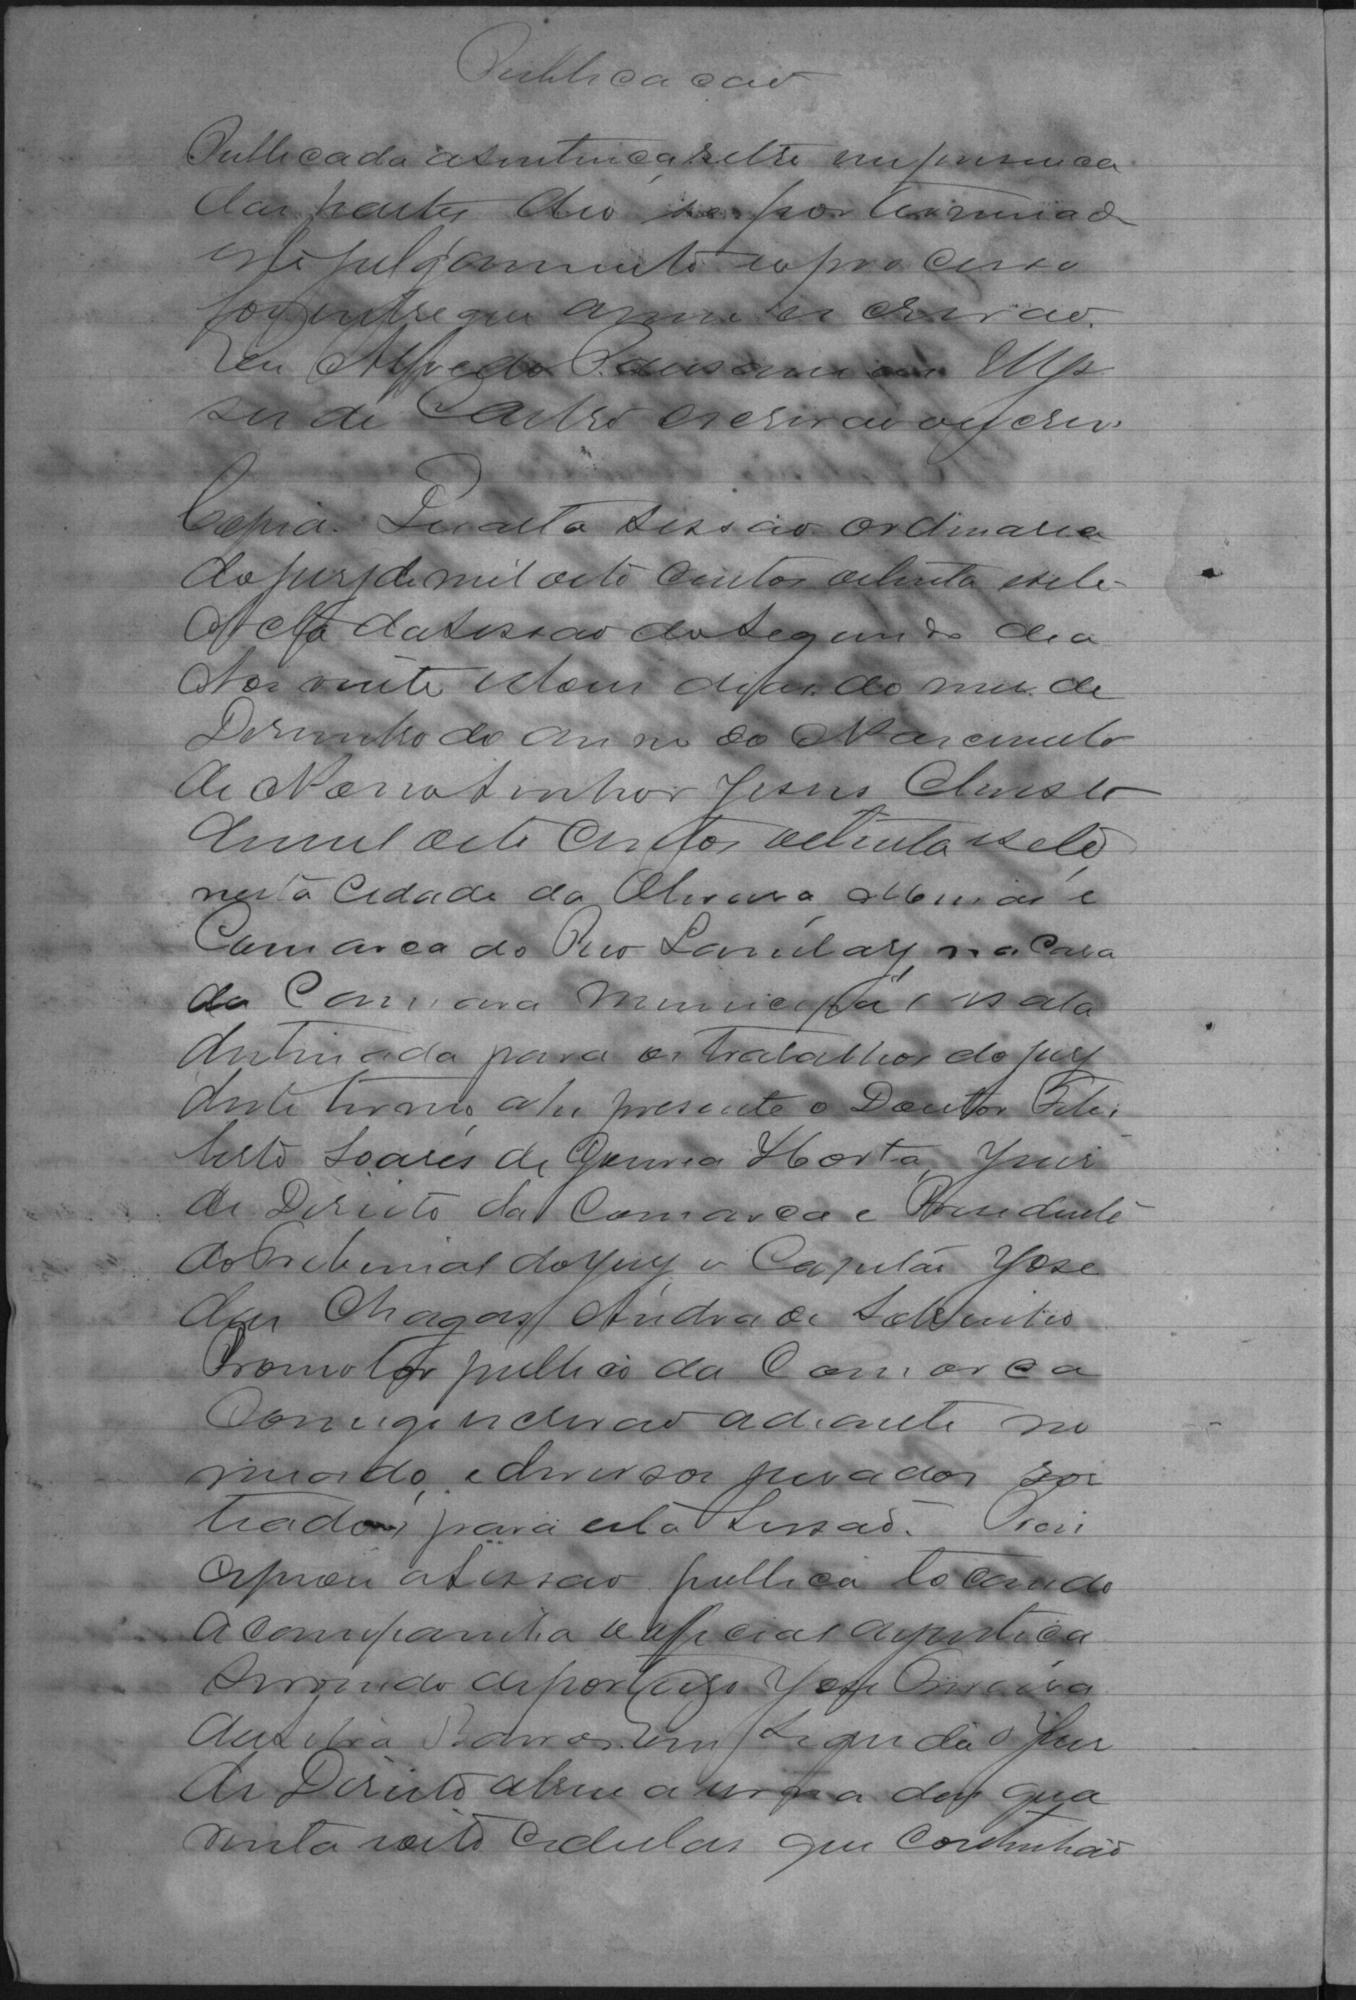 Publicacao
Publicada a sentença retro em presença
das partes deo se por terminad
este julgamento e o processo
foi entregue a mim escrivao.
Eu Alfredo Pausanias
de Castro escrivao o escrevi
Copia. Quarta sessao ordinaria
do jury de mil oito centos oitenta e sete
Acta da sessao do segundo dia
Aos vinte e dous dias do mes de
Desembro do anno do Nascimento
de Nosso Senhor Jesus Christo
de mil oito centos oitenta e sete
nesta Cidade da Oliveira Minas e
Comarca do Rio Lambary na Casa
da Camara Municipal e sala
destinada para os trabalhos do jury
deste termo ahi presente o Doutor Feli
berto Soares de Gouvea Horta, Juiz
de Direito da Comarca e Presidente
do Tribunal do jury o Capitão Jose
das Chagas Andrade Sobrinho
Promotor publico da Comarca
Comigo escrivao adiante no
meado, e diversos jurados sor
teados para esta Sessaõ.
a sessao publica tocando
a campainha o official a justiça
servindo de porteiro Jose Ferreira
da Silva Ramos. Em seguida o Juiz
de Direito abrio a urna das qua
renta e oito cedulas que continhaõ